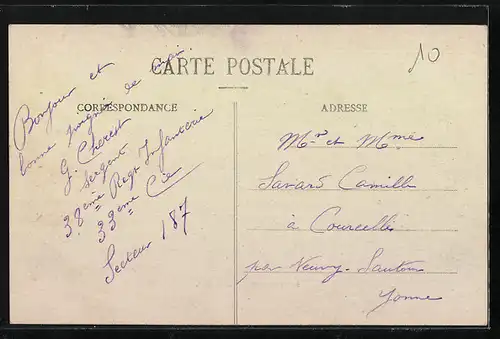 10
CARTE POSTALE
CORRESPONDANCE
Bonjour et
bonne poignée de main.
G. Cherest
Sergent
38ème Regt Infanterie
33ème Cie
Secteur 187
ADRESSE
Mr et Mme
Savard Camille
à Courcelles
par Neuvy-Sautour
Yonne